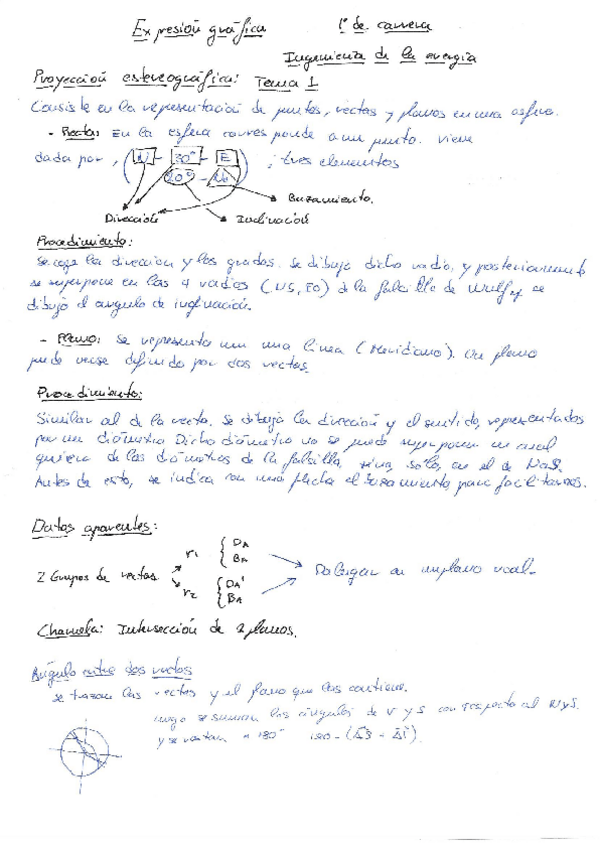 Expresión gráfica 1º de carrera
Ingeniería de la energía
Proyección estereográfica: Tema 1
Consiste en la representación de puntos, rectas y planos en una esfera.
- Recta: En la esfera corresponde a un punto. Viene
dada por, (N - 30º - E ; tres elementos
20º - No)
Buzamiento.
Dirección Inclinación
Procedimiento:
Se coge la dirección y los grados. Se dibuja dicho radio, y posteriormente
se superpone en los 4 radios (NS, EO) de la falsilla de Wulff y se
dibuja el angulo de inclinación.
- Plano: Se representa con una línea (Meridiano). Un plano
puede verse definido por dos rectas.
Procedimiento:
Similar al de la recta. Se dibuja la dirección y el sentido, representados
por un diámetro. Dicho diámetro no se puede superponer en cual
quiera de los diámetros de la falsilla, sino, sólo, en el de NaS.
Antes de esto, se indica con una flecha el buzamiento para facilitarnos.
Datos aparentes:
2 Grupos de rectas r1 { DA BA
r2 { DA' BA
Da lugar a un plano real.
Charnela: Intersección de 2 planos.
Ángulo entre dos rectas
se trazan las rectas y el plano que las contiene.
luego se suman los ángulos de r y s con respecto al N y S.
y se restan a 180º 180 - (